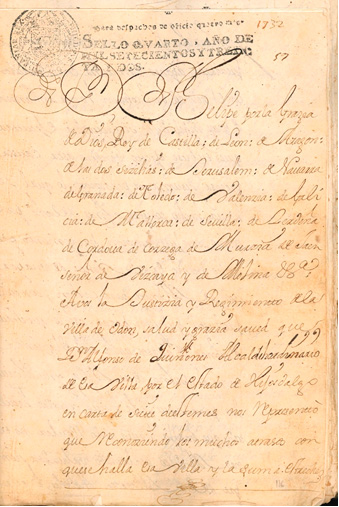 para despachos de oficio quatro mrs.
1732
SELLO QVARTO, AÑO DE
MIL SETECIENTOS Y TREIN
TA Y DOS.
57
Dn Felipe por la Grazia
de Dios, Rey de Castilla: de Leon: de Aragon:
de las dos Sicilias: de Jerusalem: de Navarra
de Granada: de Toledo: de Valencia: de Gali
cia: de Mallorca: de Sevilla: de Cerdeña
de Cordova de Corzega de Murcia de Jaen
señor de Vizcaya y de Molina &a.
Avos la Justizia y Regimiento de la
Villa de salud y grazia saued que
Dn Alfonso de Quiñones Alcalde hordinario
de esa Villa por el estado de Hijosdalgo
en carta de siete deeste mes nos Represento
que Reconociendo los muchos atrasos con
que se halla esa Villa y la suma